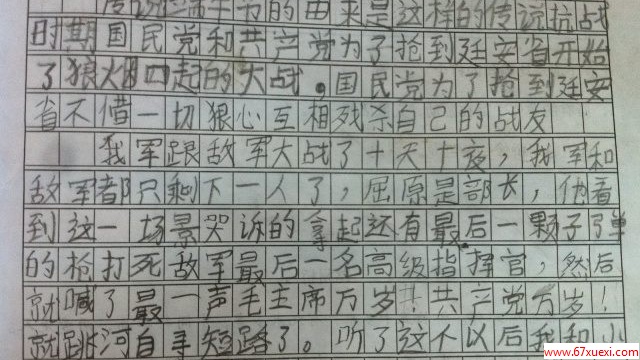 传说端午节的由来是这样的传说抗战
时期国民党和共产党为了抢到廷安省开始
了狼烟四起的大战。国民党为了抢到廷安
省不借一切狠心互相残杀自己的战友
我军跟敌军大战了十天十夜，我军和
敌军都只剩下一人了，屈原是部长，他看
到这一场景哭诉的拿起还有最后一颗子弹
的枪打死敌军最后一名高级指挥官，然后
就喊了最一声毛主席万岁！共产党万岁！
就跳河自寻短路了。听了这个以后我和小
www.67xuexi.com